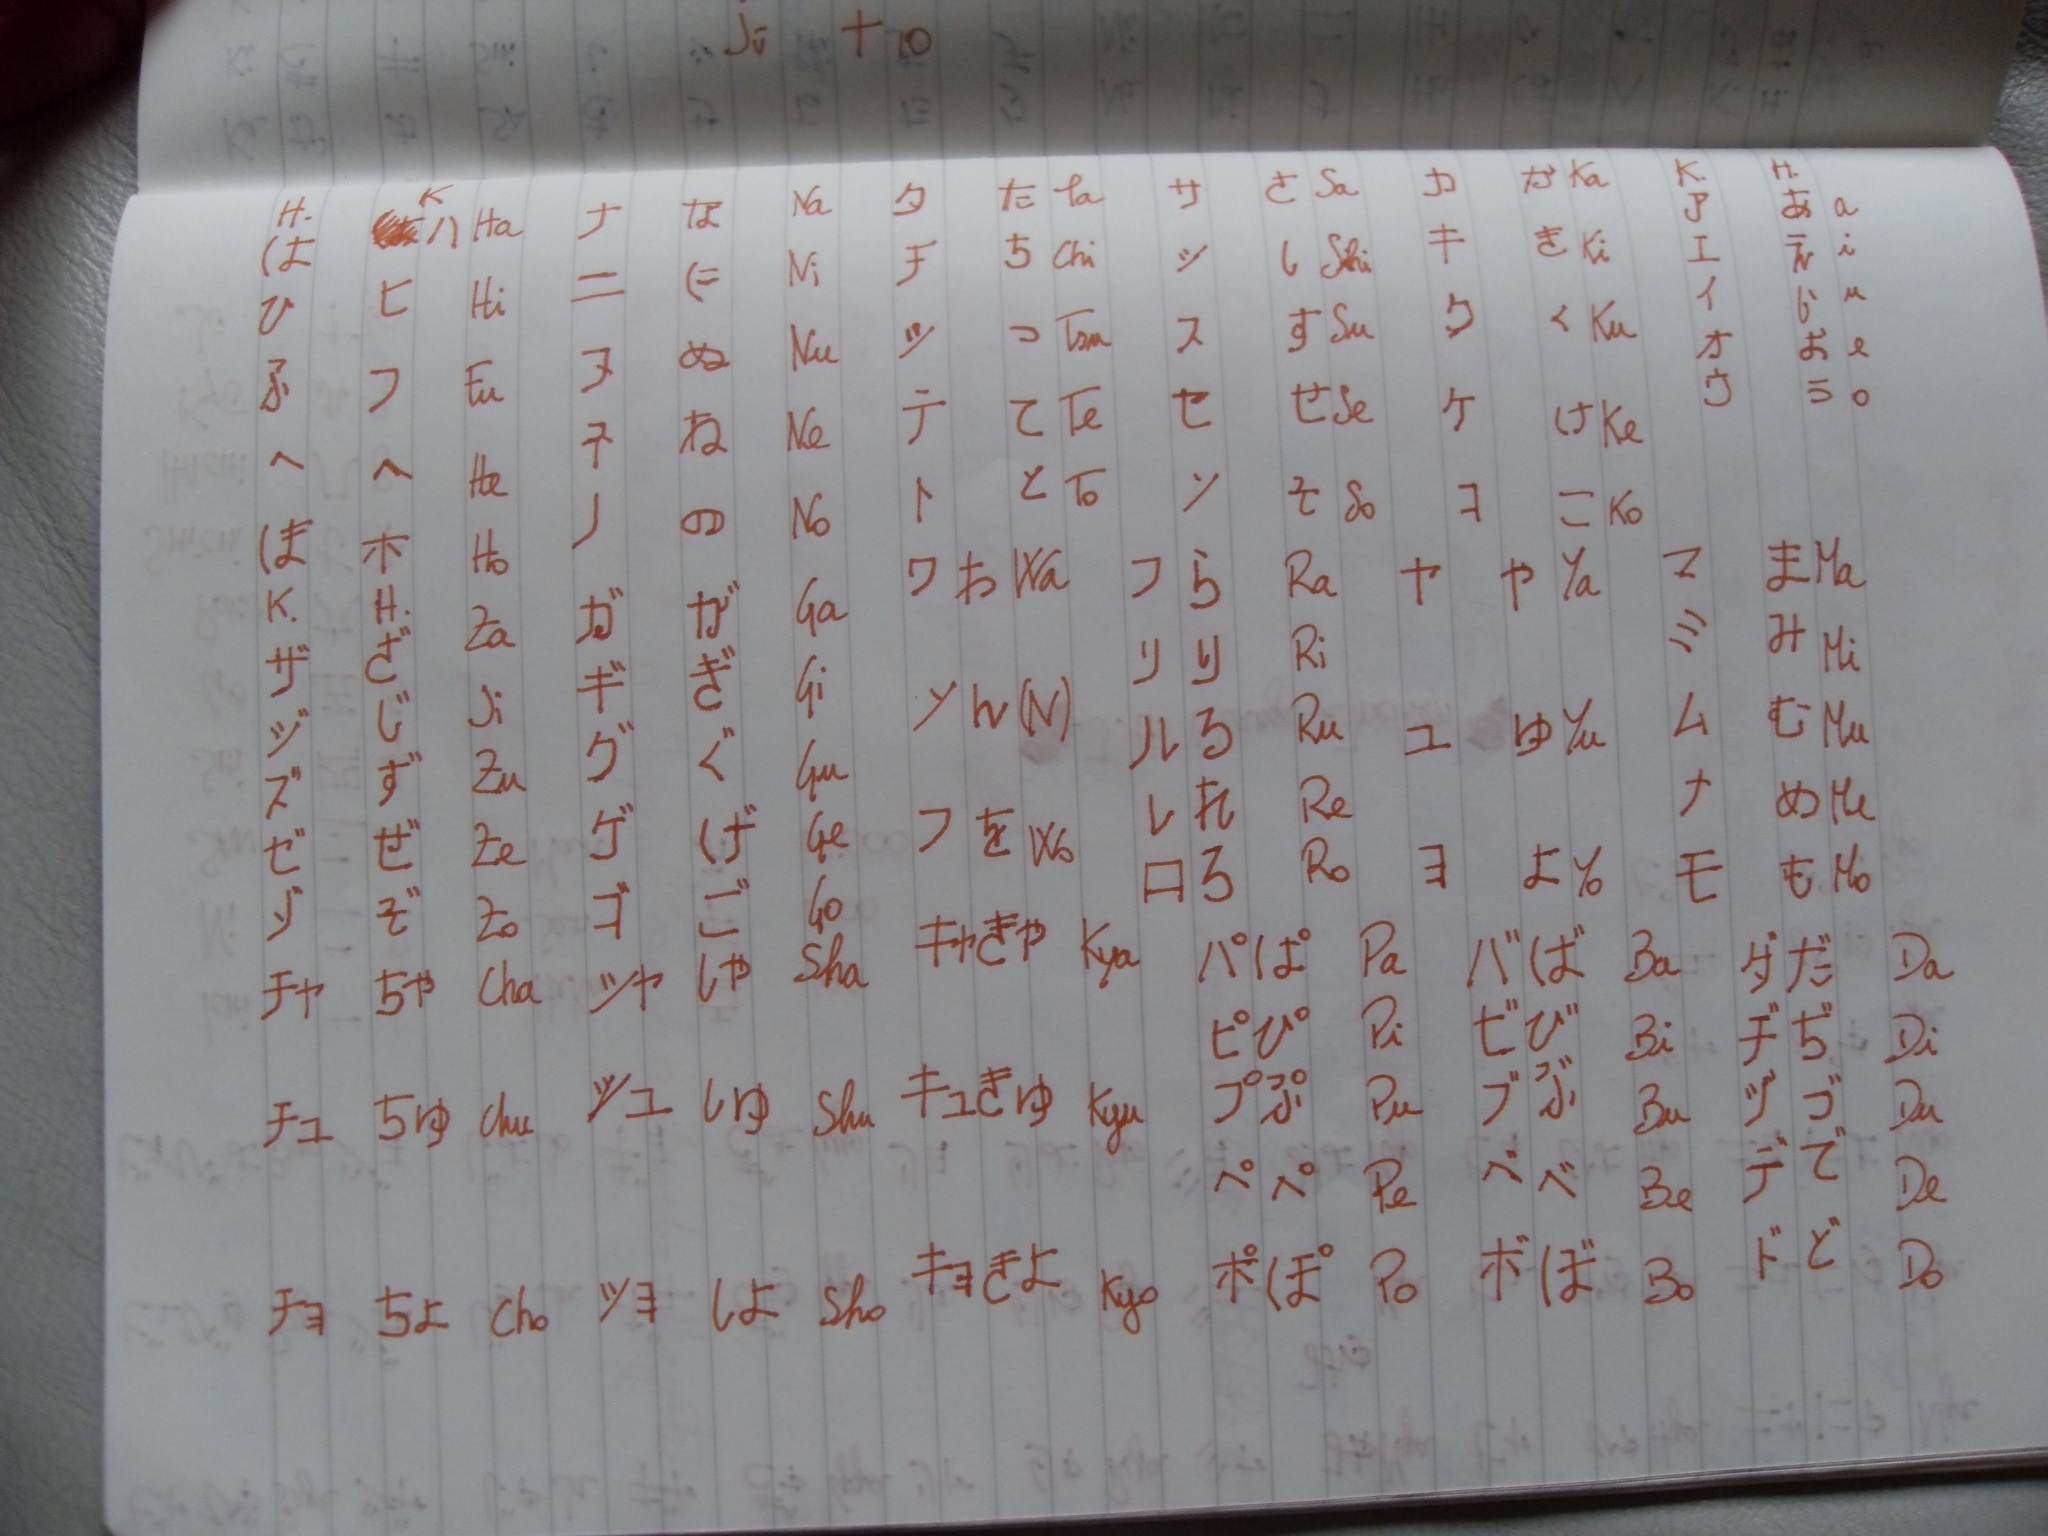 Ji 十 10
H. K ハ Ha ナ な Na タ た Ta サ さ Sa カ か Ka K. H.
は ヒ Hi ニ に Ni チ ち Chi シ し Shi キ き Ki ア あ a
ひ フ Fu ヌ ぬ Nu ツ つ Tsu ス す Su ク く Ku エ え i
ふ ヘ He ネ ね Ne テ て Te セ せ Se ケ け Ke イ い u
へ ホ Ho ノ の No ト と To ソ そ So コ こ Ko オ お e
ほ ウ う o
K. H.
ザ ざ Za ガ が Ga ワ わ Wa ラ ら Ra ヤ や Ya マ ま Ma
ジ じ Ji ギ ぎ Gi リ り Ri ミ み Mi
ズ ず Zu グ ぐ Gu ン ん (N) ル る Ru ユ ゆ Yu ム む Mu
ゼ ぜ Ze ゲ げ Ge ヲ を Wo レ れ Re メ め Me
ゾ ぞ Zo ゴ ご Go ロ ろ Ro ヨ よ Yo モ も Mo
チャ ちゃ Cha シャ しゃ Sha キャ きゃ Kya パ ぱ Pa バ ば Ba ダ だ Da
ピ ぴ Pi ビ び Bi ヂ ぢ Di
チュ ちゅ Chu シュ しゅ Shu キュ きゅ Kyu プ ぷ Pu ブ ぶ Bu ヅ づ Du
ペ ぺ Pe ベ べ Be デ で De
チョ ちょ Cho ショ しょ Sho キョ きょ Kyo ポ ぽ Po ボ ぼ Bo ド ど Do